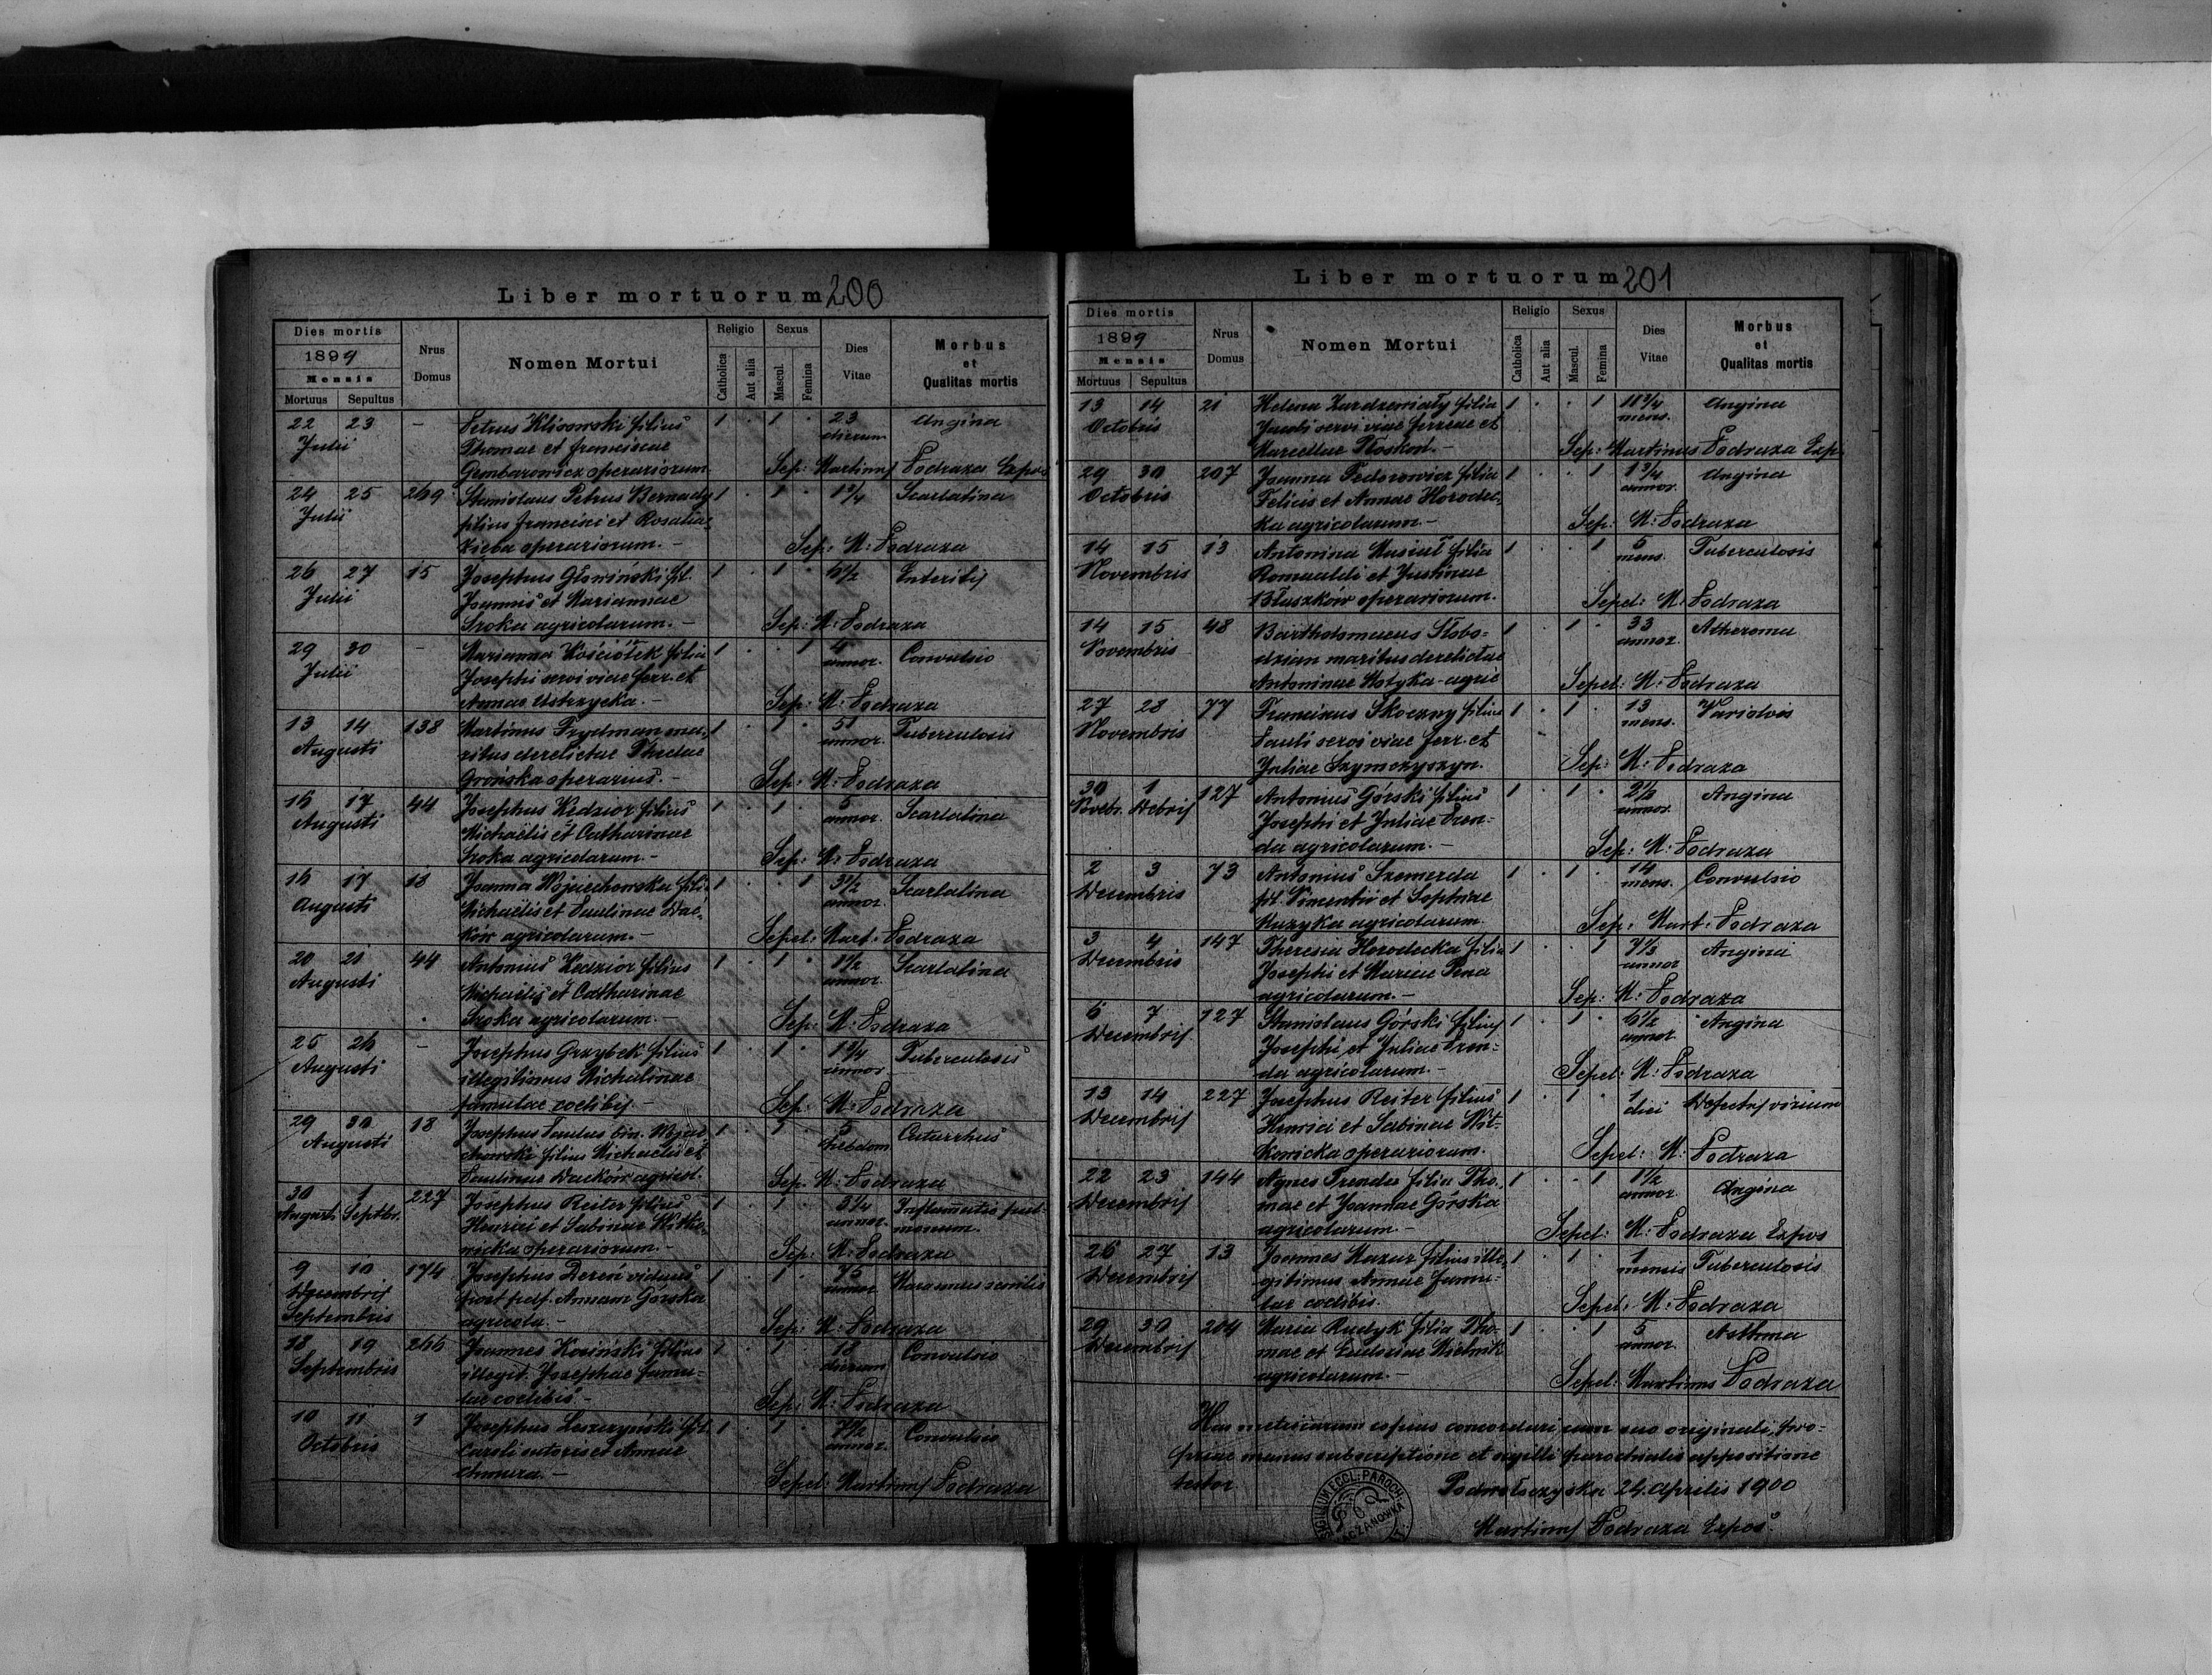 Liber mortuorum 200
Dies mortis
1899
Mensis
Mortuus Sepultus
Nrus Domus
Nomen Mortui
Religio
Catholica Aut alia
Sexus
Mascul. Femina
Dies Vitae
Morbus et Qualitas mortis
22 23 - Petrus Klisowski filius 1 . 1 . 23 Angina
Julii Thomae et Franciscae dierum
Gembarowicz operariorum Sep: Martinus Podraza Expos
24 25 269 Stanislaus Petrus Bernady 1 . 1 . 1 3/4 Scarlatina
Julii filius Francisci et Rosaliae
Zięba operariorum. - Sep: M: Podraza
26 27 15 Josephus Głowiński fil. 1 . 1 . 6 1/2 Enteritis
Julii Joannis et Mariannae
Sroka agricolarum. - Sep: M: Podraza
29 30 - Marianna Kościółek filia 1 . . 1 4 Convulsio
Julii Josephi servi viae ferr. et annor.
Annae Ustrzycka. - Sep: M: Podraza
13 14 138 Martinus Frydman ma- 1 . 1 . 51 Tuberculosis
Augusti ritus derelictae Theclae annor.
Grońska operarius. - Sep: M: Podraza
16 17 44 Josephus Kędzior filius 1 . 1 . 5 Scarlatina
Augusti Michaëlis et Catharinae annor.
Sroka agricolarum. - Sep: M: Podraza
16 17 18 Joanna Wojciechowska fili- 1 . . 1 3 1/2 Scarlatina
Augusti Michaëlis et Paulinae Dać- annor.
ków agricolarum. - Sepel: Mart: Podraza
20 21 44 Antonius Kędzior filius 1 . 1 . 1 1/2 Scarlatina
Augusti Michaëlis et Catharinae annor.
Sroka agricolarum. - Sep: M: Podraza
25 26 - Josephus Grzybek filius 1 . 1 . 1 3/4 Tuberculosis
Augusti illegitimus Michalinae annor.
famulae coelibis. - Sep: M: Podraza
29 30 18 Josephus Paulus bin. Wojcie- 1 . 1 . 5 Catarrhus
Augusti chowski filius Michaëlis et hebdom
Paulinae Daćków agricol. Sep. M: Podraza
30 1 227 Josephus Reiter filius 1 . 1 . 3 1/4 Inflammatio pul-
Augusti Septbr. Henrici et Sabinae Witko- annor. monum.
wicka operariorum. - Sep: M: Podraza
9 10 174 Josephus Dereń viduus 1 . 1 . 75 Marasmus senilis
Decembris post pdf. Annam Górska annor.
Septembris agricola. - Sep: M: Podraza
18 19 266 Joannes Kosiński filius 1 . 1 . 18 Convulsio
Septembris illegit. Josephae famu- dierum
lae coelibis. - Sep: M: Podraza
10 11 1 Josephus Leszczyński fil. 1 . 1 . 7 1/2 Convulsio
Octobris Caroli sutoris et Annae annor.
Chmura. - Sepel: Martinus Podraza
Liber mortuorum 201
Dies mortis
1899
Mensis
Mortuus Sepultus
Nrus Domus
Nomen Mortui
Religio
Catholica Aut alia
Sexus
Mascul. Femina
Dies Vitae
Morbus et Qualitas mortis
13 14 21 Helena Zardzewiały filia 1 . . 1 11 3/4 Angina
Octobris Jacobi servi viae ferreae et mens.
Marcellae Płoskoń. - Sep: Martinus Podraza Exp.
29 30 207 Joanna Fedorowicz filia 1 . . 1 1 3/4 Angina
Octobris Felicis et Annae Horodec- annor.
ka agricolarum - Sep: M: Podraza
14 15 13 Antonina Musiał filia 1 . . 1 5 Tuberculosis
Novembris Romualdi et Justinae mens.
Błaszków operariorum. Sepel: M: Podraza
14 15 48 Bartholomaeus Słobo- 1 . 1 . 33 Atheroma
Novembris dzian maritus derelictae annor.
Antoninae Motyka - agric Sepel: M: Podraza
27 28 77 Franciscus Skoczny filius 1 . 1 . 13 Variolois
Novembris Pauli servi viae ferr. et mens.
Juliae Szymczyszyn. Sep: M: Podraza
30 1 127 Antonius Górski filius 1 . 1 . 2 1/2 Angina
Novebr. Debris Josephi et Juliae Tren- annor.
da agricolarum. - Sep: M: Podraza
2 3 73 Antonius Szemerda 1 . 1 . 14 Convulsio
Decembris fil. Vincentii et Sophiae mens.
Muzyka agricolarum. Sep: Mart: Podraza
3 4 147 Theresia Horodecka filia 1 . . 1 7 1/2 Angina
Decembris Josephi et Mariae Pena annor
agricolarum. - Sep: M: Podraza
6 7 127 Stanislaus Górski filius 1 . 1 . 6 1/2 Angina
Decembris Josephi et Juliae Tren- annor.
da agricolarum. - Sepel: M: Podraza
13 14 227 Josephus Reiter filius 1 . 1 . 1 Defectus virium
Decembris Henrici et Sabinae Wit- diei
kowicka operariorum. Sepel: M: Podraza
22 23 144 Agnes Trenda filia Tho- 1 . . 1 1 1/2 Angina
Decembris mae et Joannae Górska annor.
agricolarum. - Sepel: M: Podraza Expos
26 27 13 Joannes Mazur filius ille- 1 . 1 . 1 Tuberculosis
Decembris gitimus Annae famu- mensis
lae coelibis. Sepel: M: Podraza
29 30 204 Maria Rudyk filia Tho- 1 . . 1 5 Asthma
Decembris mae et Eudociae Mielnik annor.
agricolarum. - Sepel: Martinus Podraza
Has metricarum copias concordari cum suo originali, pro-
priae manus subscriptione et sigilli parochialis appositione
testor Podwołoczyska 24. Aprilis 1900
SIGILLUM ECCL. PAROCH. KACZANÓWKA
Martinus Podraza Expos.